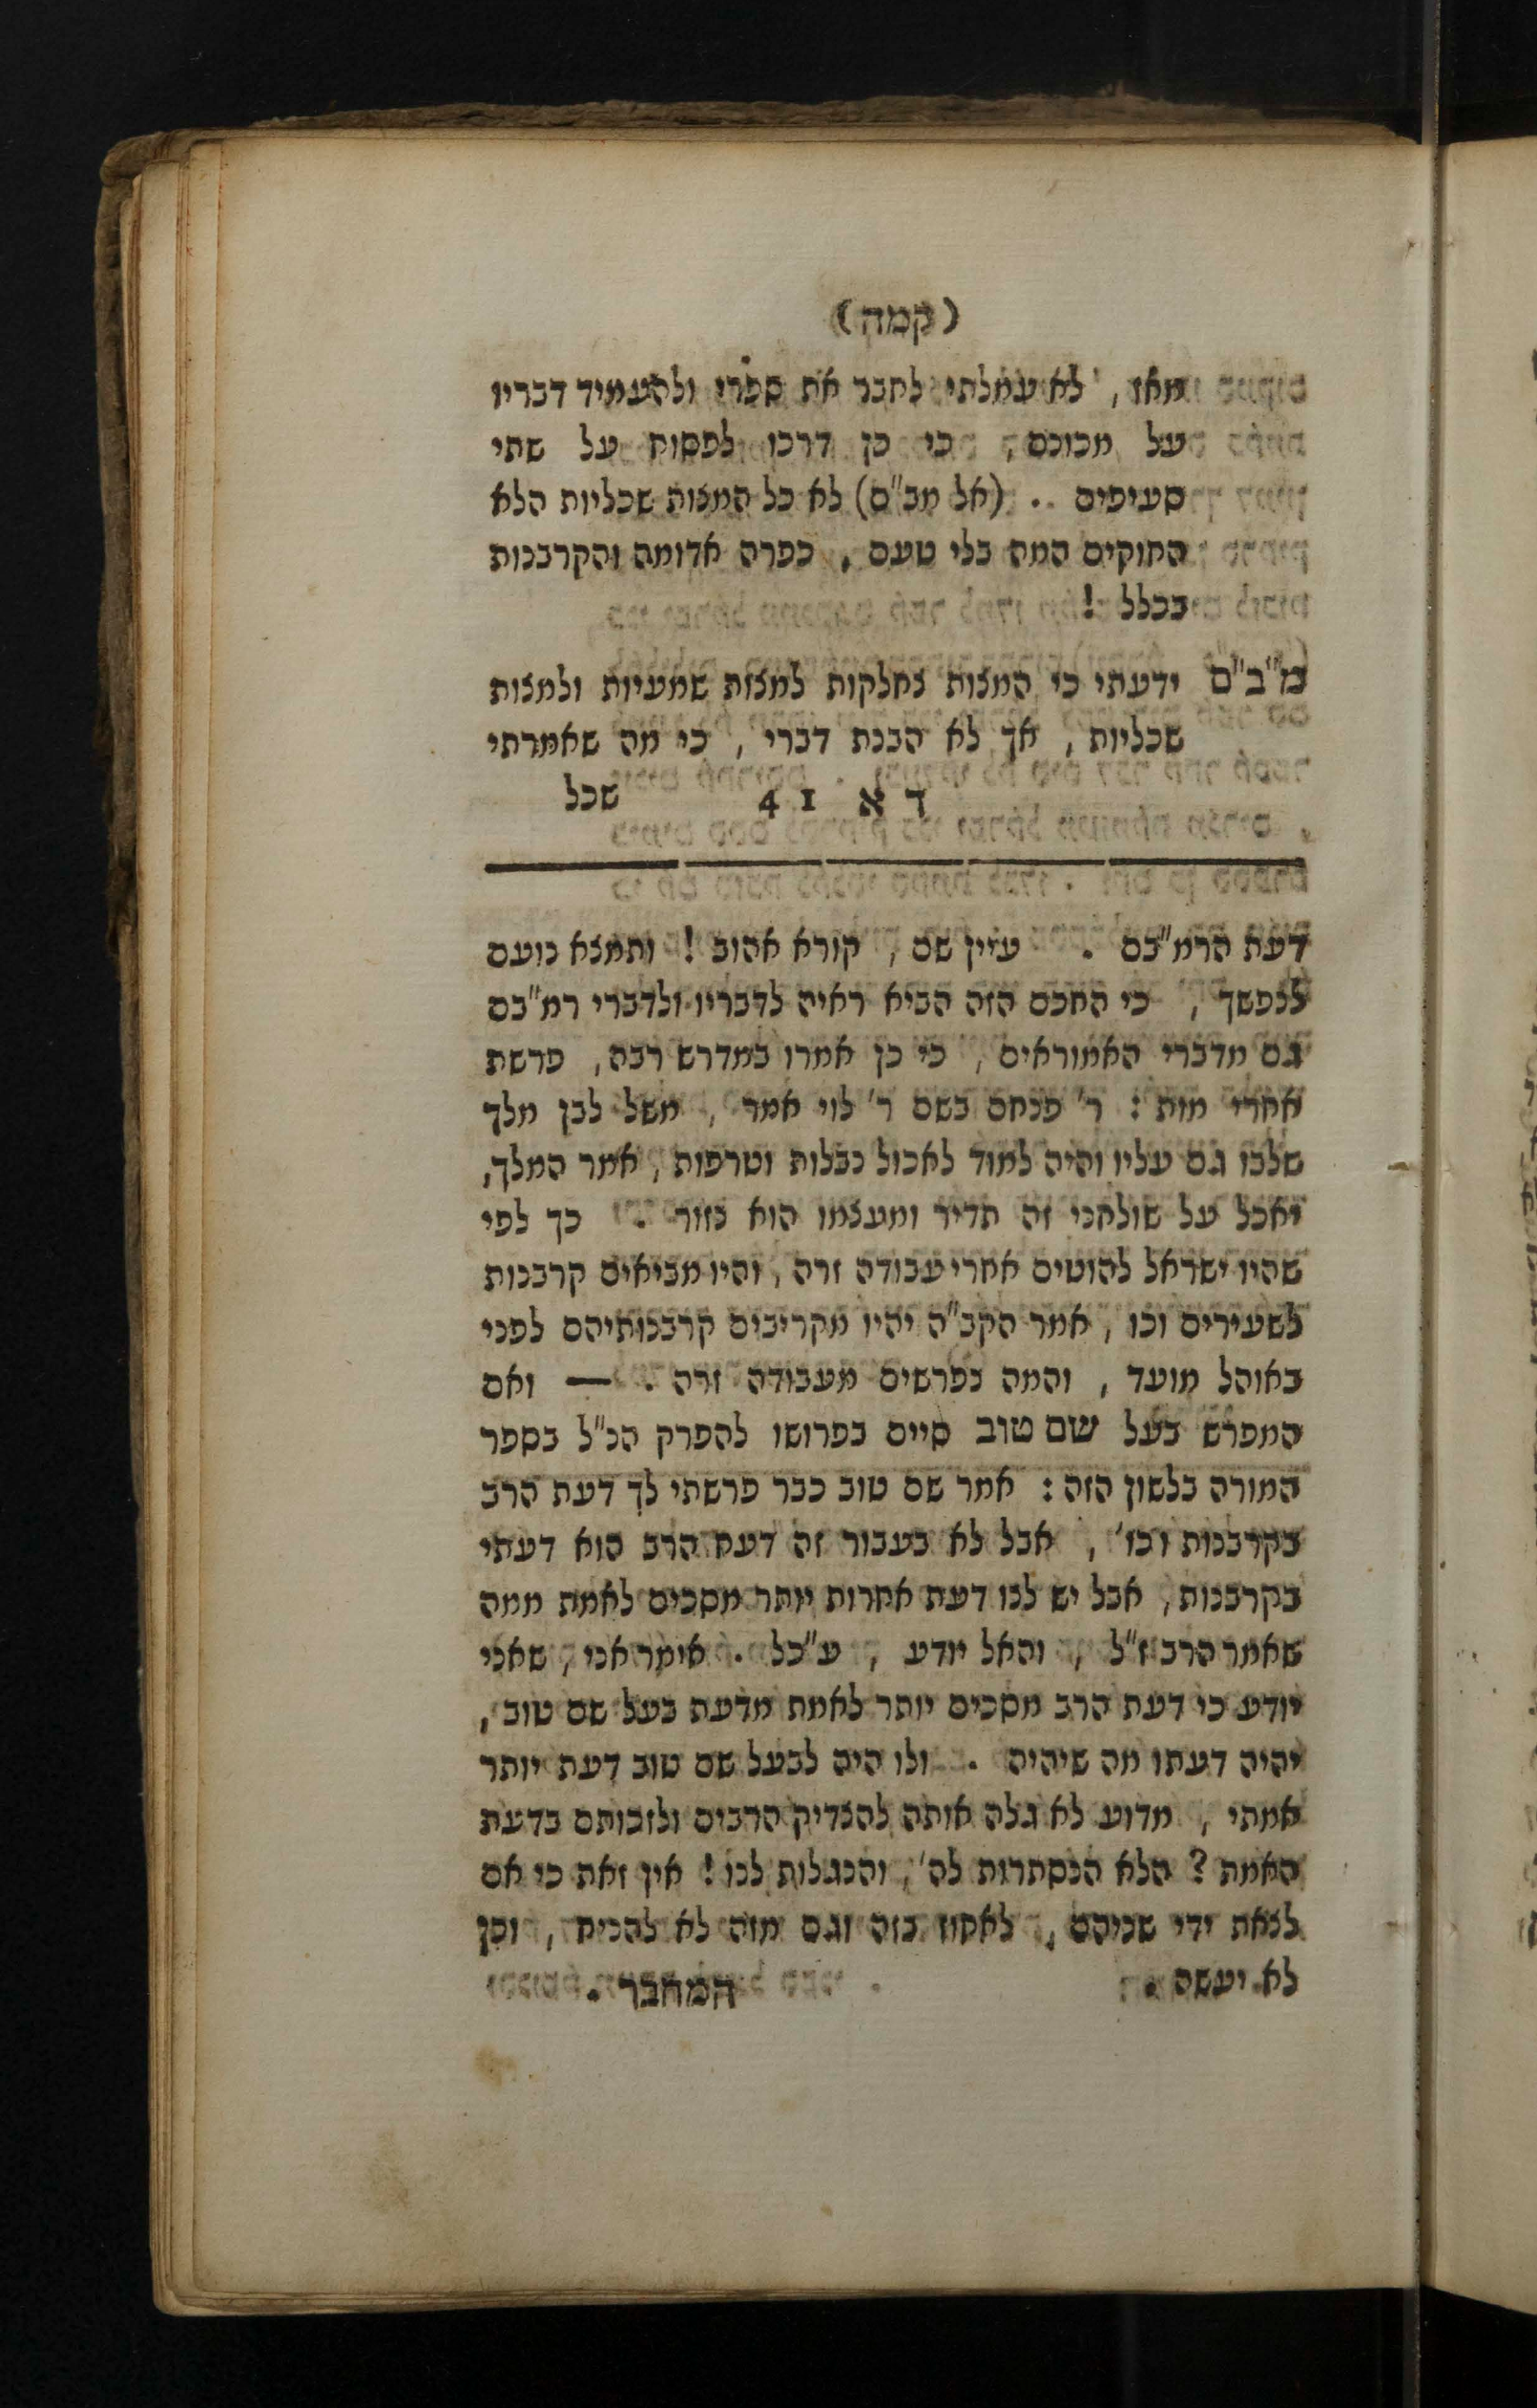 (קמה)
מאז , לא עמלתי לחבר את ספרי ולהעמיד דבריו
על מכונם , כי כן דרכו לפסוח על שתי
סעיפים .. (אל מב"ם) לא כל המצות שכליות הלא
החוקים המה בלי טעם , כפרה אדומה והקרבנות
בכלל !
מ"ב"ם ידעתי כי המצות נחלקות למצות שמעיות ולמצות
שכליות , אך לא הבנת דברי , כי מה שאמרתי
ד א 41 שכל
דעת הרמ"בם . עיין שם , קורא אהוב ! ותמצא נועם
לנפשך , כי החכם הזה הביא ראיה לדבריו ולדברי רמ"בם
גם מדברי האמוראים , כי כן אמרו במדרש רבה , פרשת
אחרי מות : ר' פנחס בשם ר' לוי אמר , משל לבן מלך
שלבו גס עליו והיה למוד לאכול נבלות וטרפות , אמר המלך ,
יאכל על שולחני זה תדיר ומעצמו הוא נזור . כך לפי
שהיו ישראל להוטים אחרי עבודה זרה , והיו מביאים קרבנות
לשעירים וכו , אמר הקב"ה יהיו מקריבים קרבנותיהם לפני
באוהל מועד , והמה נפרשים מעבודה זרה . — ואם
המפרש בעל שם טוב סיים בפרושו להפרק הנ"ל בספר
המורה בלשון הזה : אמר שם טוב כבר פרשתי לך דעת הרב
בקרבנות וכו' , אבל לא בעבור זה דעת הרב הוא דעתי
בקרבנות , אבל יש לנו דעת אחרות יותר מסכים לאמת ממה
שאמר הרב ז"ל , והאל יודע , ע"כל . אומר אני , שאני
יודע כי דעת הרב מסכים יותר לאמת מדעת בעל שם טוב ,
יהיה דעתו מה שיהיה . ולו היה לבעל שם טוב דעת יותר
אמתי , מדוע לא גלה אותה להצדיק הרבים ולזכותם בדעת
האמת ? הלא הנסתרות לה' , והנגלות לנו ! אין זאת כי אם
לצאת ידי שניהם , לאחוז בזה וגם מזה לא להניח , וכן
לא יעשה . המחבר .